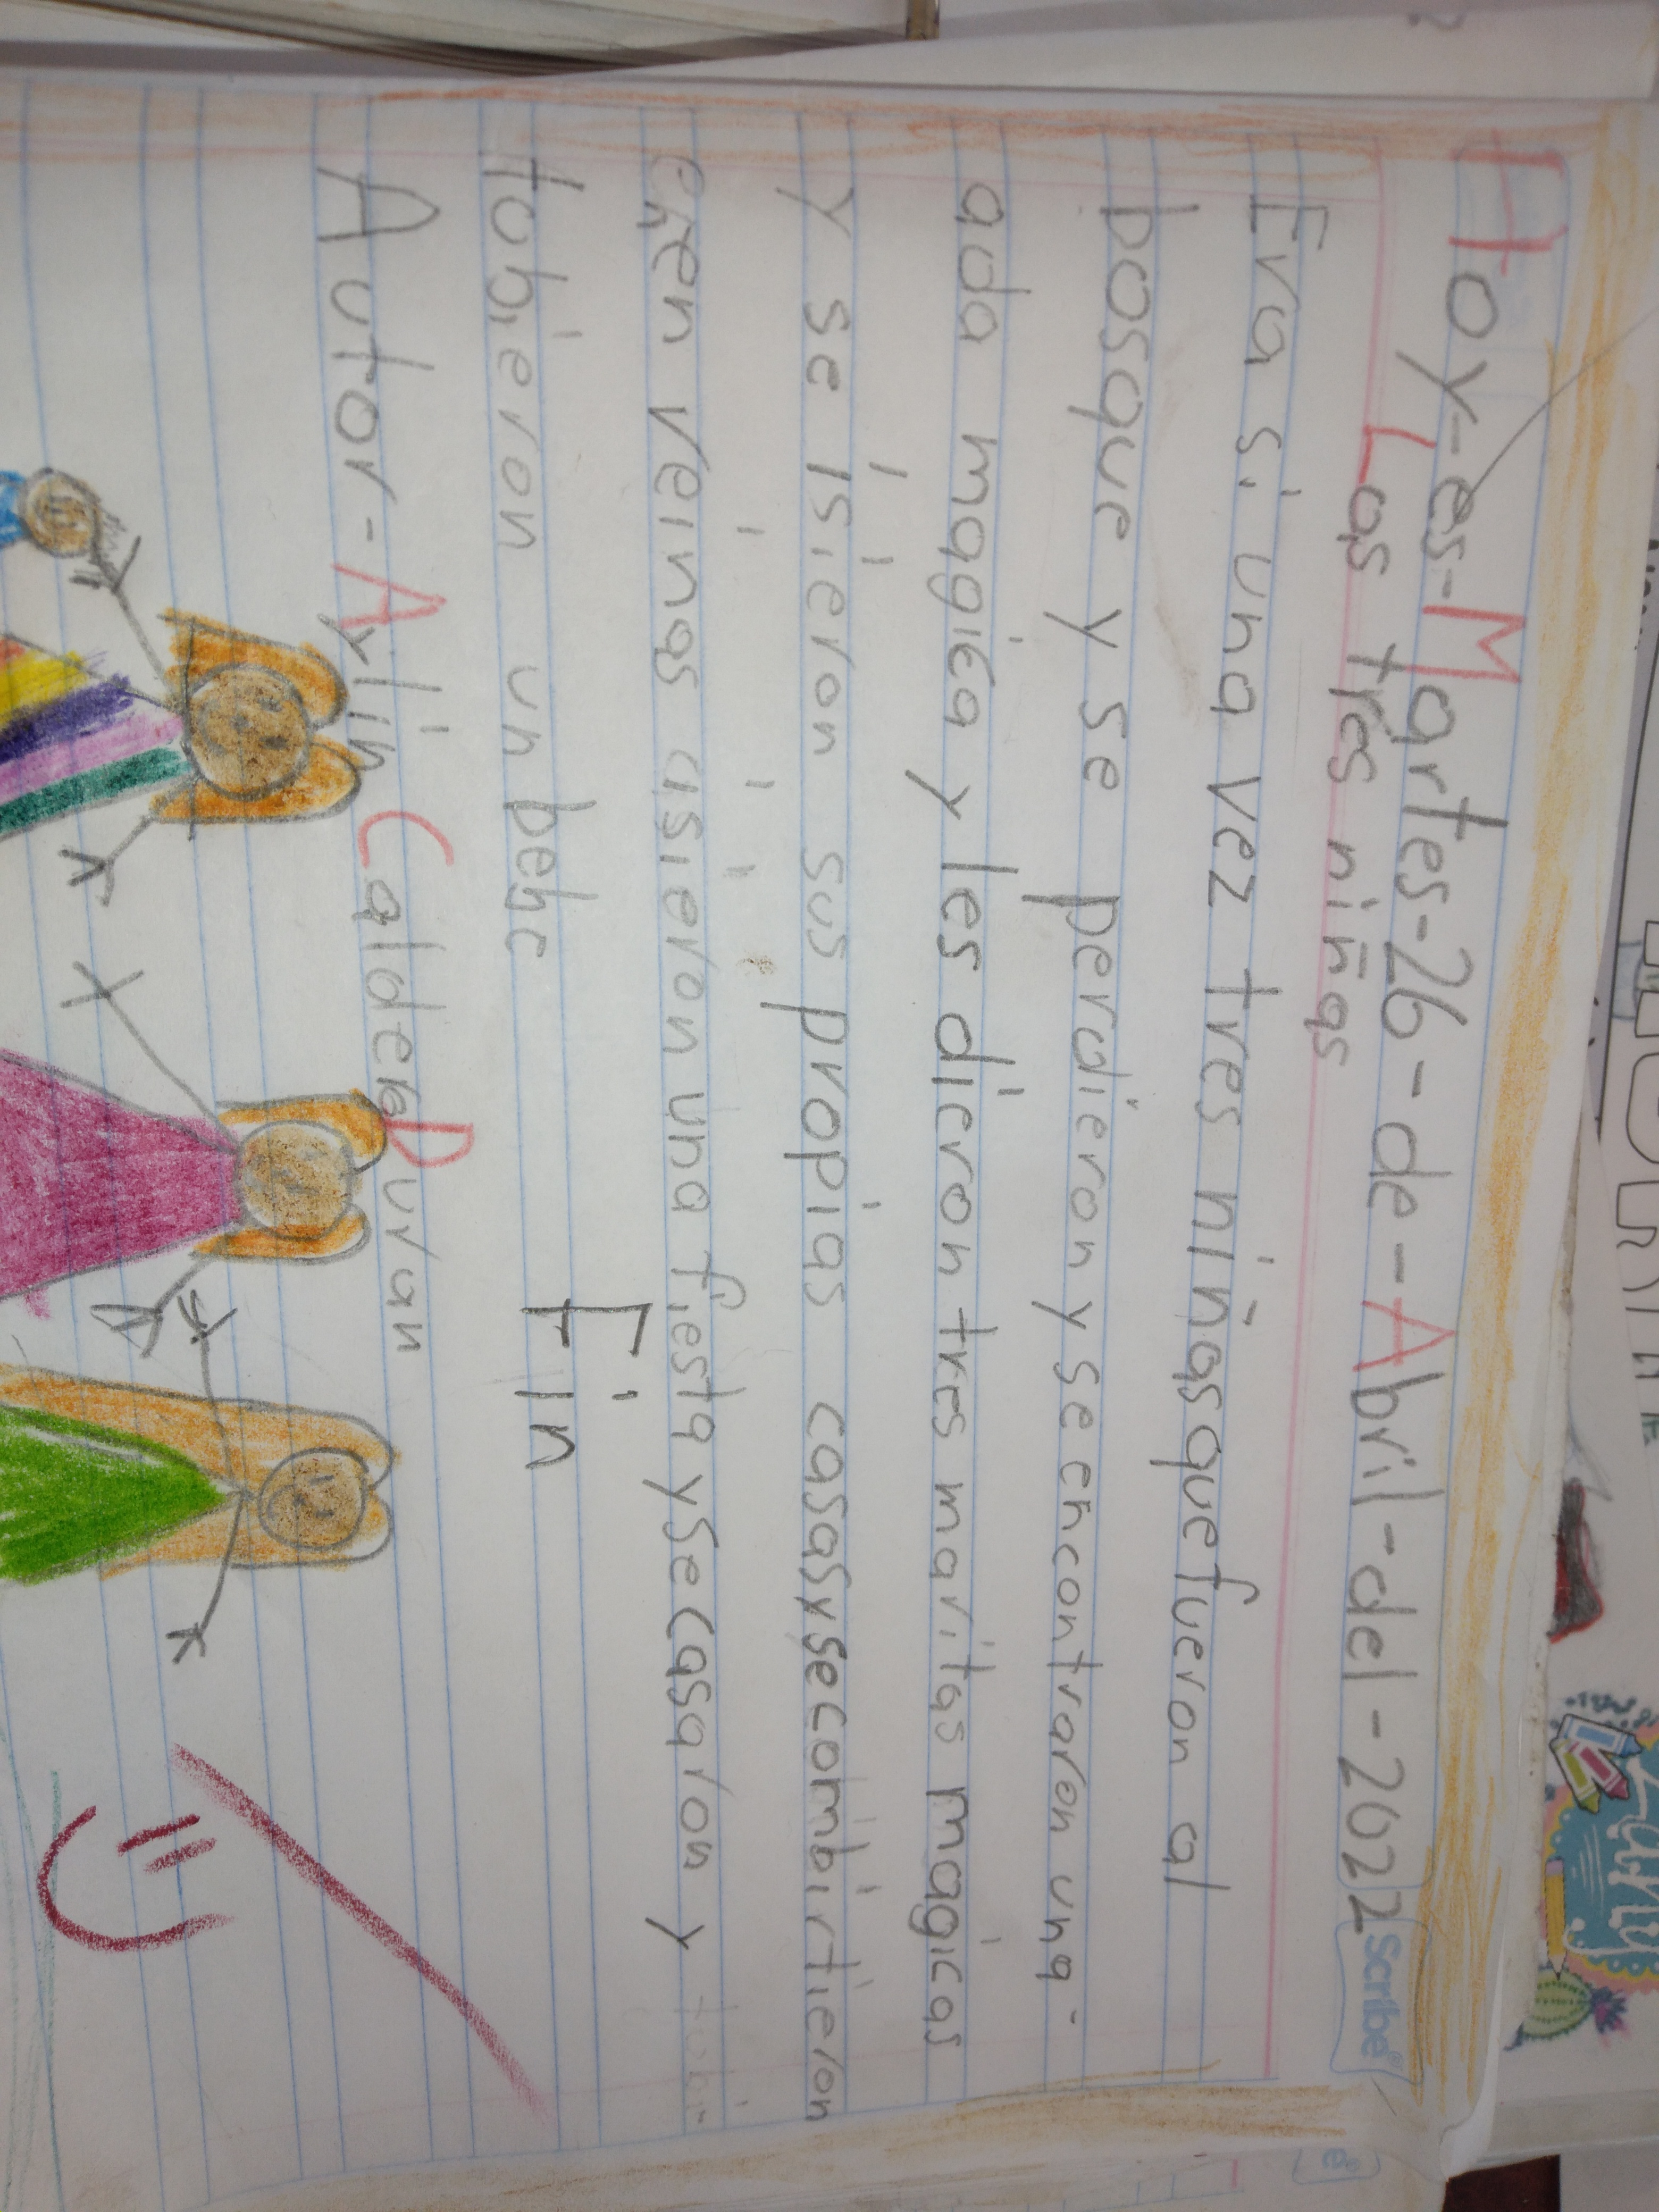 Hoy-es-Martes-26-de-Abril-del-2022
Scribe
Las tres niñas
Era si una vez tres niñas que fueron al
bosque y se perdieron y se encontraron una
ada magica y les dieron tres maritas magicas
y se isieron sus propias casas y se combirtieron
en reinas isieron una fiesta y se casaron y
tubieron un bebe
Fin
Autor-Aylin Caldera Duran